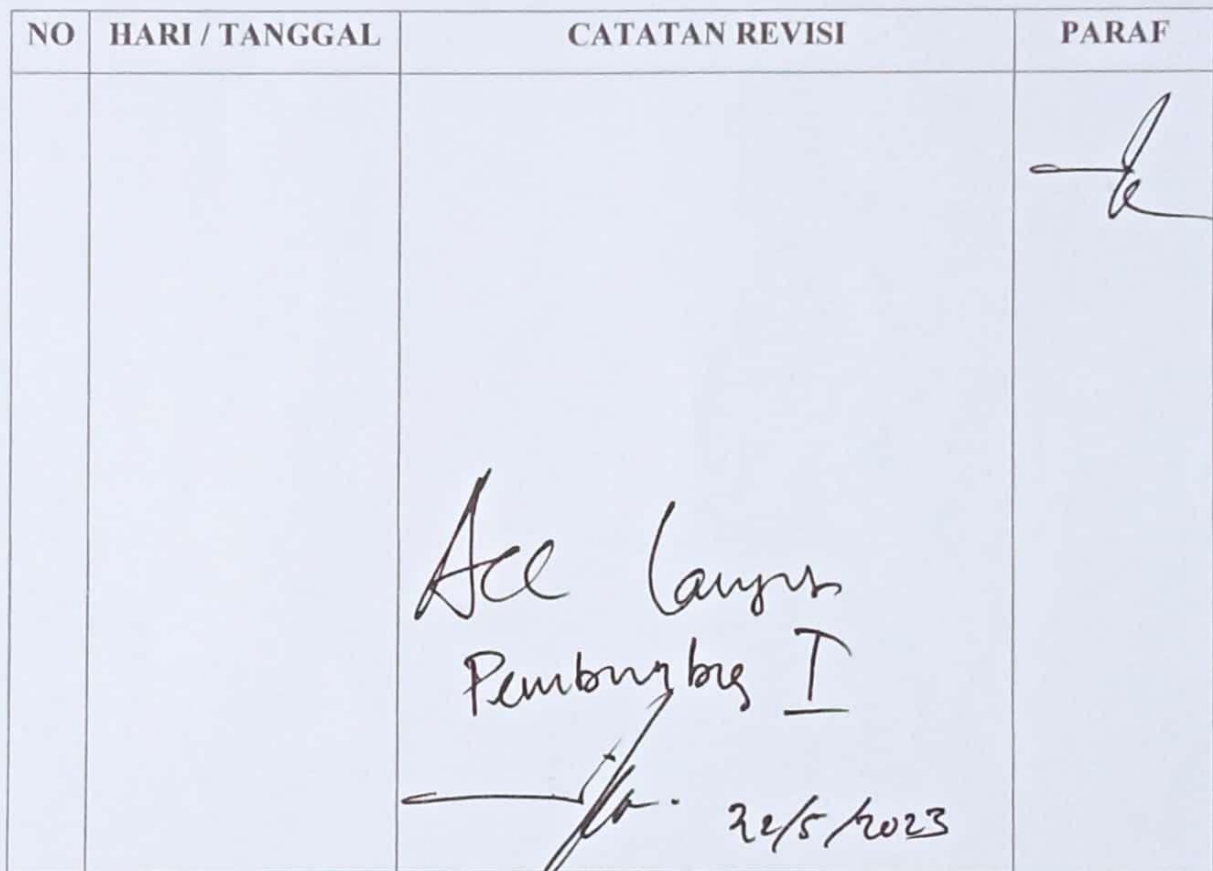 NO HARI / TANGGAL CATATAN REVISI PARAF
Acc
Pembimbing I
22/5/2023